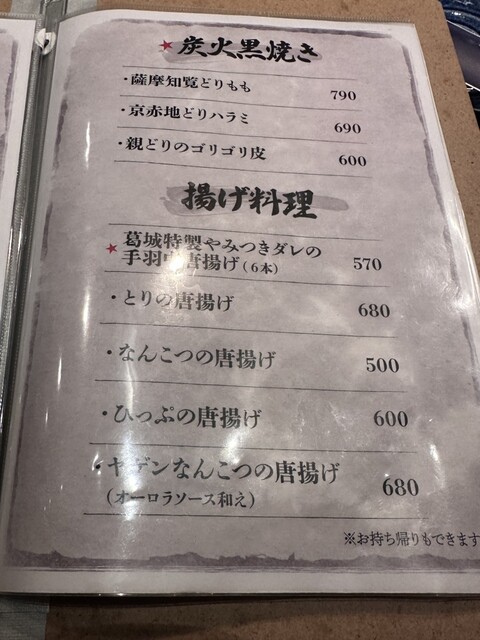 ★炭火黒焼き
・薩摩知覧どりもも 790
・京赤地どりハラミ 690
・親どりのゴリゴリ皮 600
揚げ料理
★葛城特製やみつきダレの
手羽中唐揚げ(6本) 570
・とりの唐揚げ 680
・なんこつの唐揚げ 500
・ひっぷの唐揚げ 600
・ヤゲンなんこつの唐揚げ 680
(オーロラソース和え)
※お持ち帰りもできます